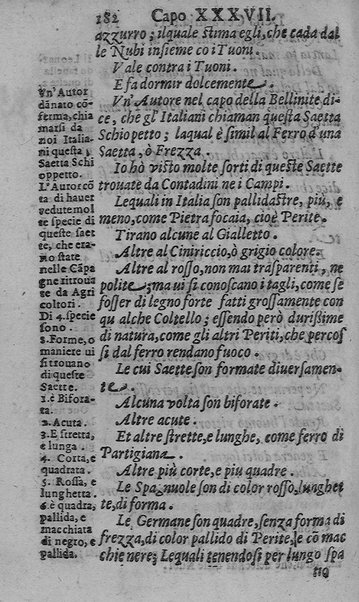 182 Capo XXXVII.
azzurro; ilquale stima egli, che cada dal
le Nubi insieme co i Tuoni.
Vale contra i Tuoni.
E fa dormir dolcemente.
Vn' Autore nel capo della Bellinite di-
ce, che gl'Italiani chiaman questa Saetta
Schiopetto; laqual è simil al Ferro d'una
Saetta, ò Frezza.
Io hò visto molte sorti di queste Saette
trouate da Contadini ne i Campi.
Lequali in Italia son pallidastre, piu, e
meno, come Pietra focaia, cioè Perite.
Tirano alcune al Gialletto.
Altre al Ciniriccio, ò grigio colore.
Altre al rosso, non mai trasparenti, ne
polite; ma ui si conoscano i tagli, come se
fosser di legno forte fatti grossamente con
qu alche Coltello; essendo però durißime
di natura, come gli altri Periti, che percos
si dal ferro rendano fuoco.
Le cui Saette son formate diuersamen-
te.
Alcuna volta son biforate.
Altre acute.
Et altre strette, e lunghe, come ferro di
Partigiana.
Altre più corte, e piu quadre.
Le Spa nuole son di color rosso, lunghet
te, di forma.
Le Germane son quadre, senza forma di
frezza, di color pallido di Perite, le cō mac
chie nere; Lequali tenendosi per lungo spa
tio
Vn' Autor
dānato cō-
ferma, chia
marsi da
noi Italia-
ni questa
Saetta Schi
oppetto.
L'Autor cō
ta di hauer
vedute mol
te specie di
queste saet
te, che era-
no state
nelle Cāpa
gne ritroua
te da Agri
coltori.
Di 4. specie
sono.
8. Forme, o
maniere ui
si trouano
di queste
Saette.
1. è Bifora-
ta.
2. Acuta.
3. E stretta,
e lunga.
4. Corta, e
quadrata.
5. Rossa, e
lunghetta.
6. è quadra,
pallida, e
macchiata
di negro, e
pallida.